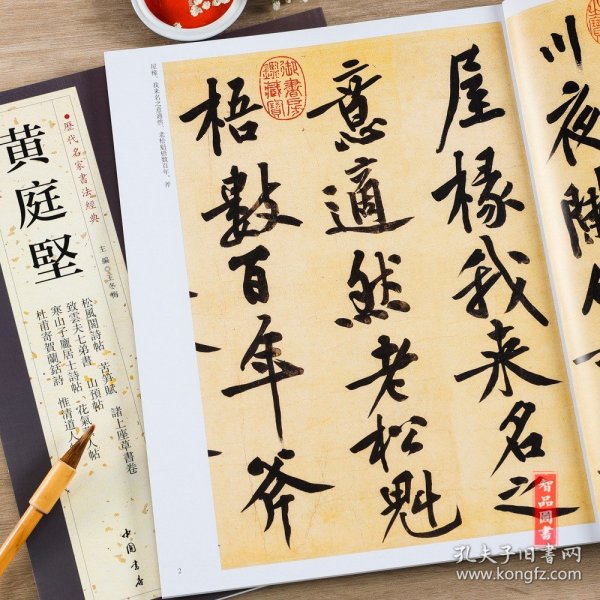 歷代名家書法經典
黄庭堅
主編◎王冬梅
松風閣詩帖 苦筍賦 諸上座草書卷
致雲夫七弟書 山預帖 花氣 人帖
寒山子龐居士詩帖
杜甫寄賀蘭銛詩 惟清道人
中國書店
川夜
屋椽我来名之
意適然老松魁
梧數百年斧
御書房鑑藏寶
屋椽。我来名之意適然。老松魁梧數百年。斧
2
智品圖書
孔夫子旧書网
www.kongfz.com